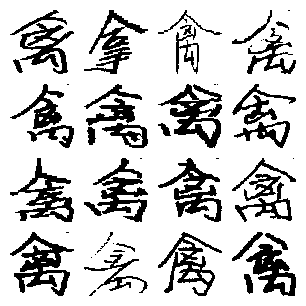 禽拿禽禽
禽禽禽禽
禽禽禽禽
禽禽禽禽